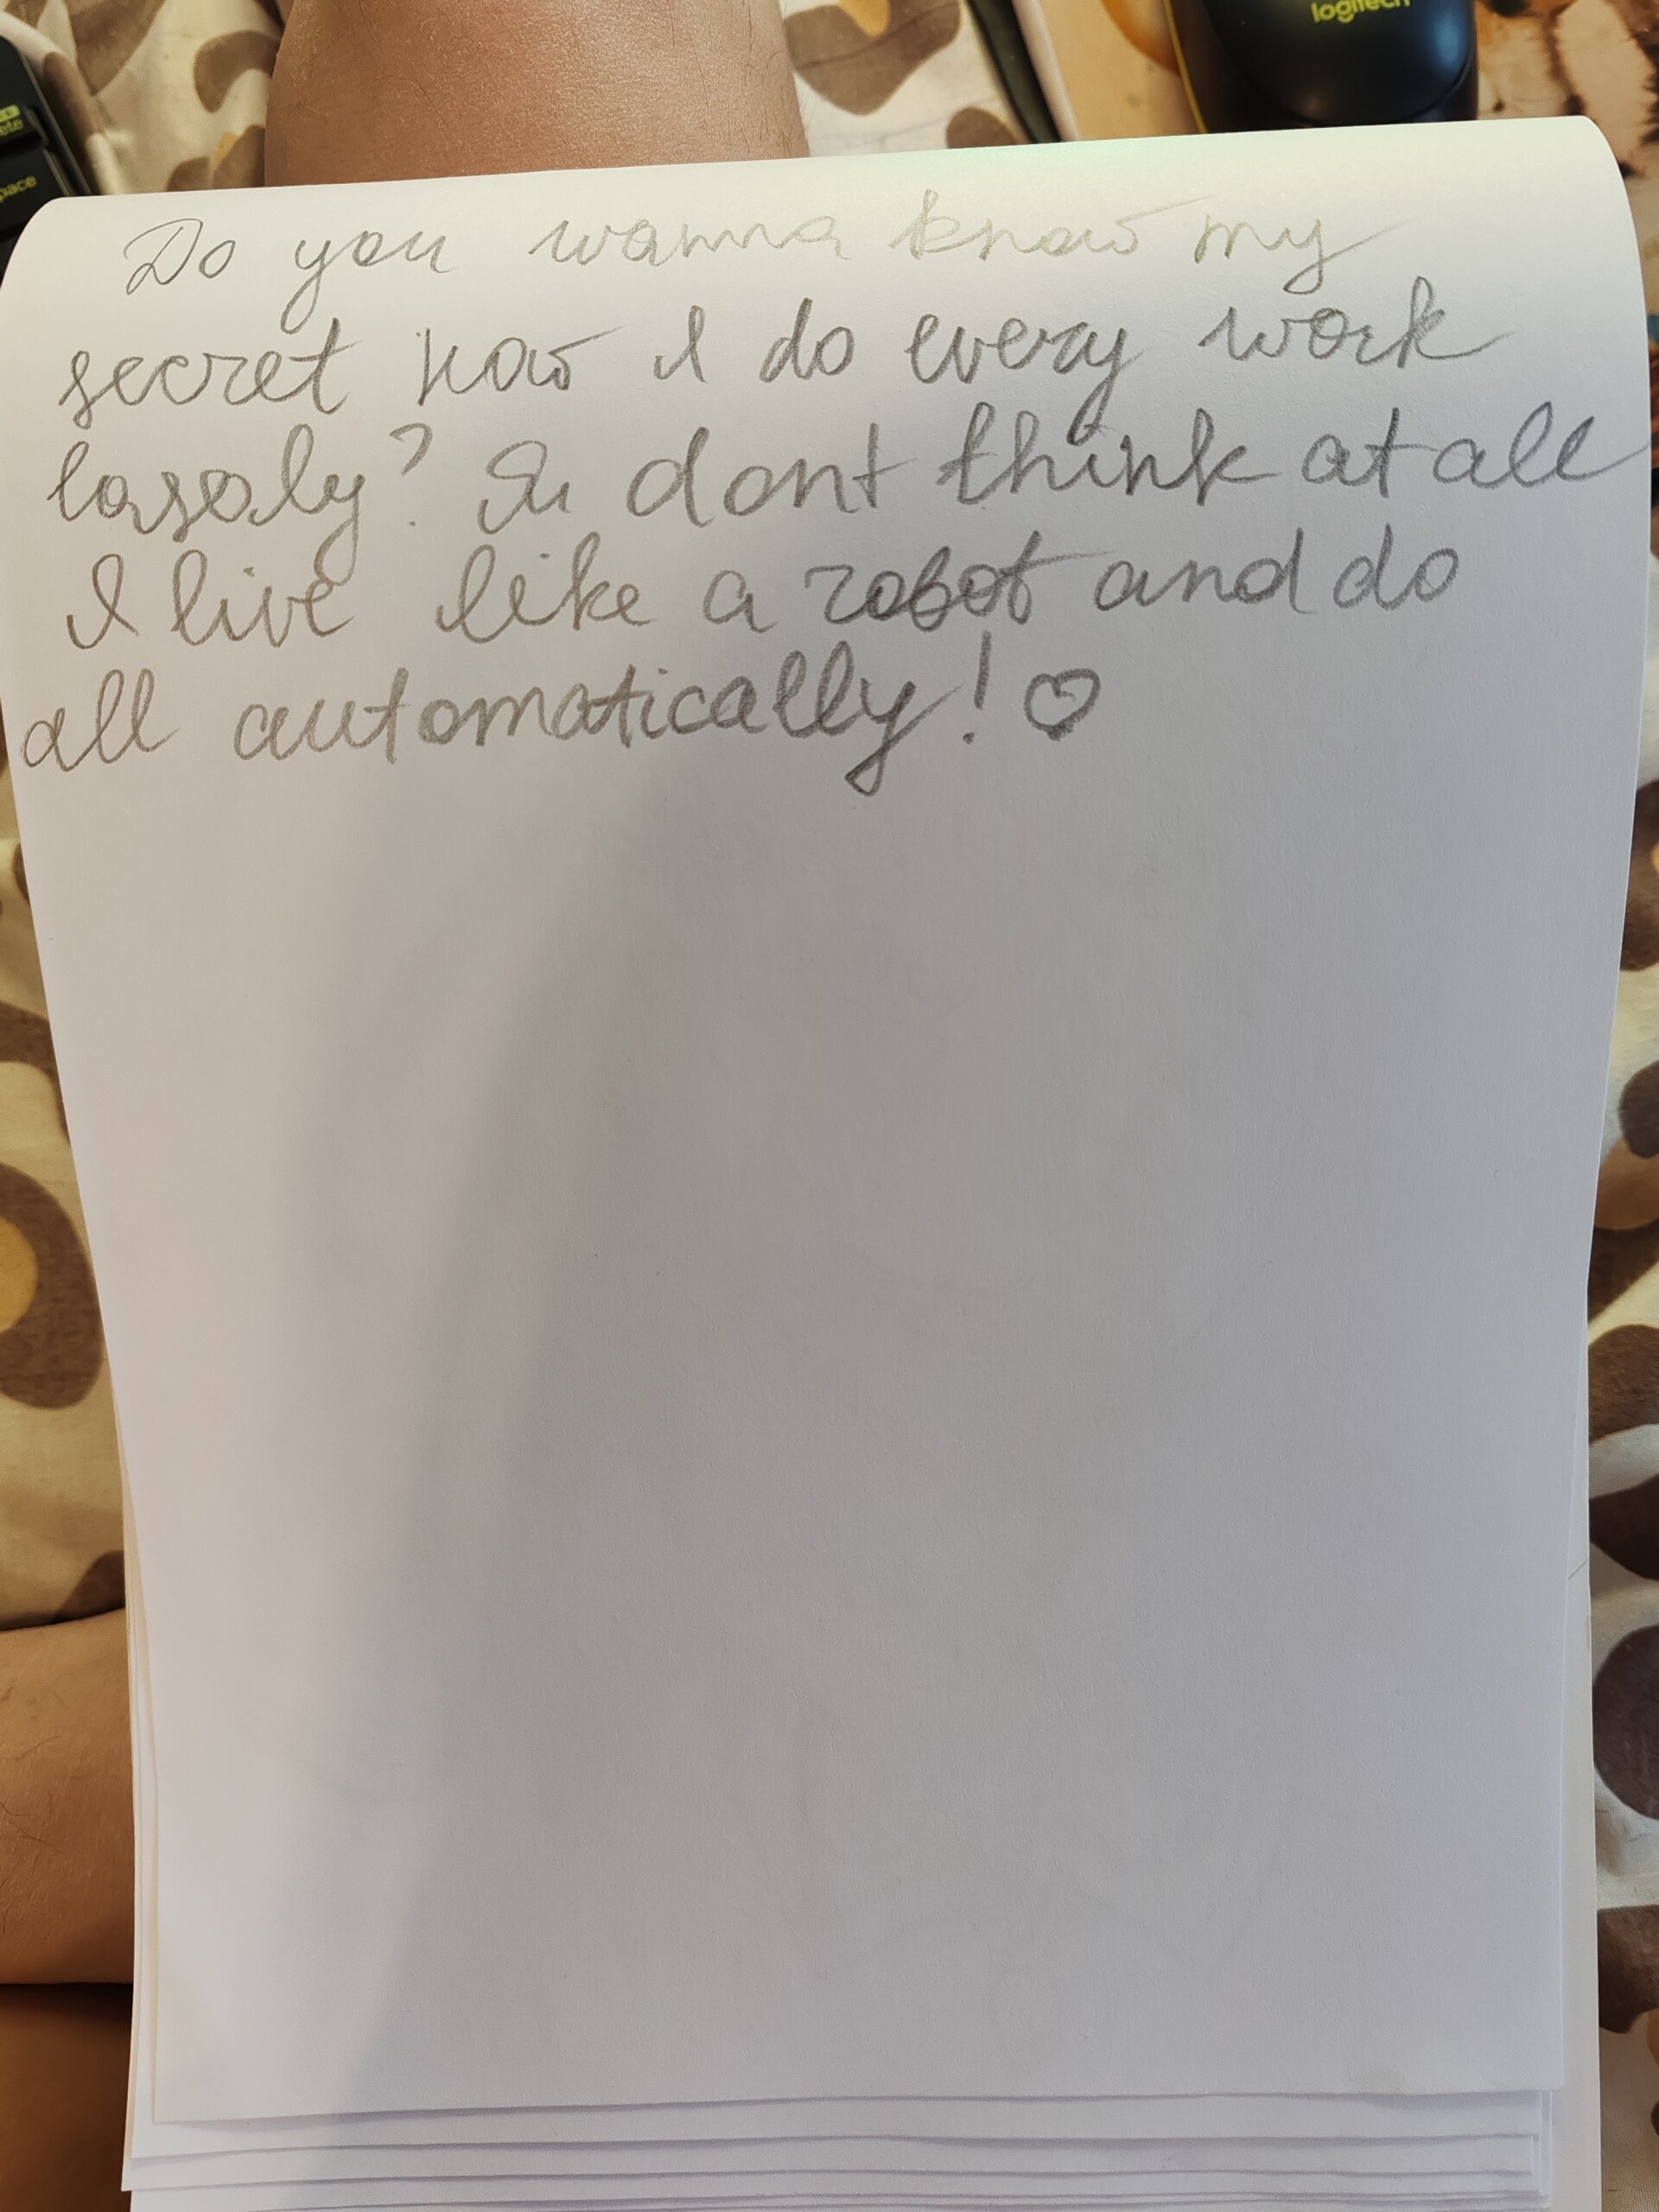 logitech
pace
Do you wanna know my
secret how I do every work
I dont think at all
I live like a robot and do
all automatically! ♡